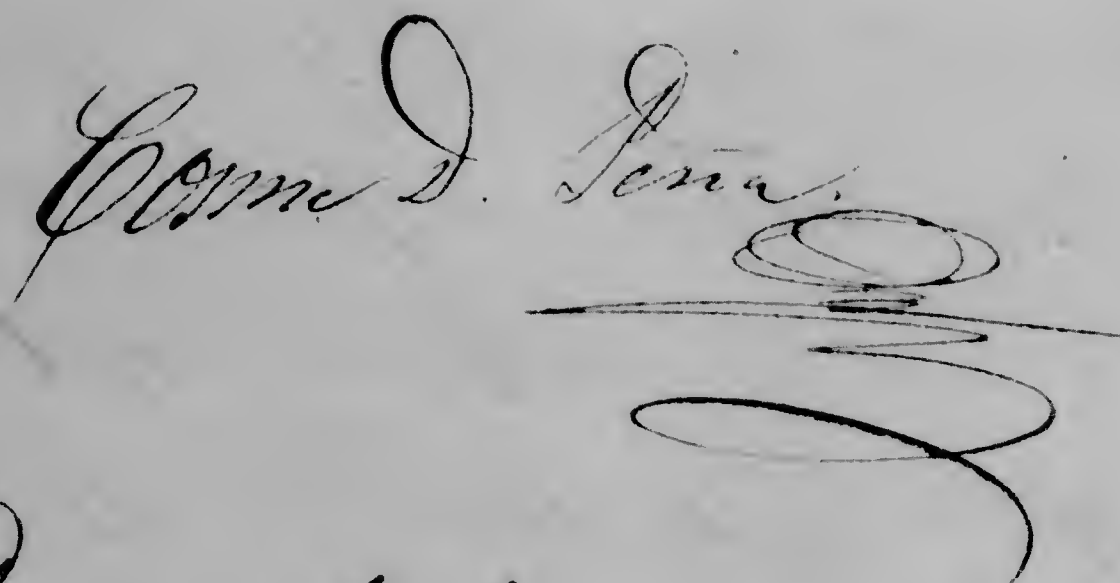 Cosme D. Peña.